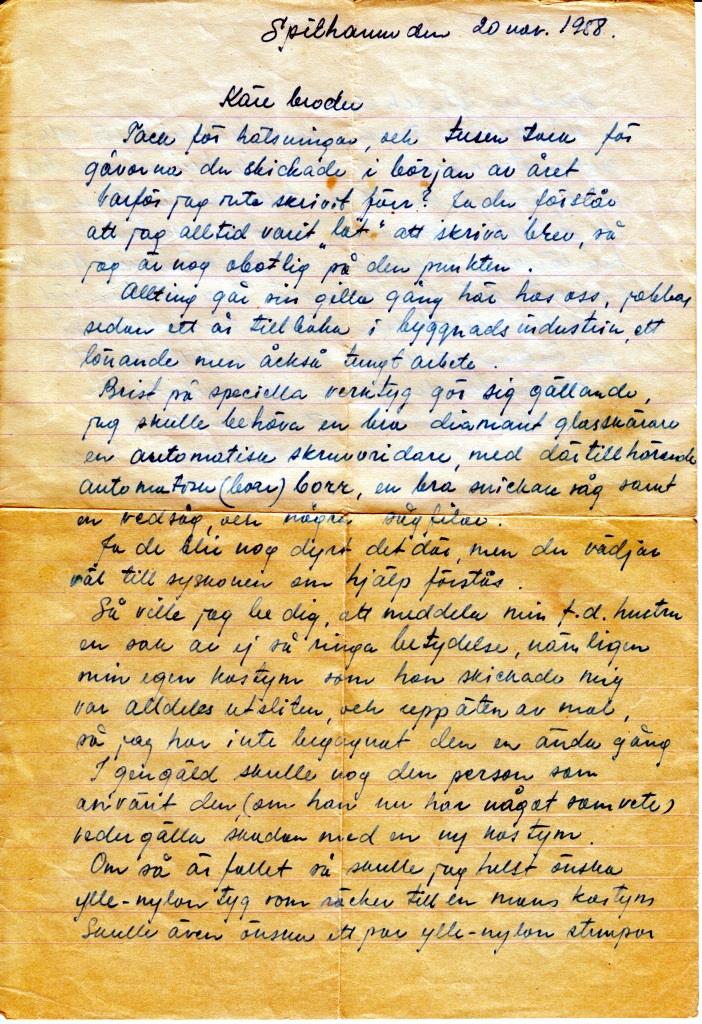 Spithamn den 20 nov. 1958.
Käre broder
Tack för hälsningar, och tusen tack för
gåvorna du skickade i början av året
Varför jag inte skrivit förr? Ja du förstår
att jag alltid varit "lat" att skriva brev, så
jag är nog obotlig på den punkten.
Allting går sin gilla gång här hos oss, jobbar
sedan ett år tillbaka i byggnadsindustrin, ett
lönande men åckså tungt arbete.
Brist på speciella verktyg gör sig gällande,
jag skulle behöva en bra diamant glasskärare
en automatisk skruvvridare, med därtillhörande
automatisk (borr) borr, en bra snickare såg samt
en vedsåg, och några sågfilar.
Ja de blir nog dyrt det där, men du vädjar
väl till syskonen om hjälp förstås.
Så ville jag be dig, att meddela min f.d. hustru
en sak av ej så ringa betydelse, nämligen
min egen kostym som hon skickade mig
var alldeles utsliten, och uppäten av mal,
så jag har inte begagnat den en ända gång
I gengäld skulle nog den person som
använt den, (om han nu har något samvete)
vedergälla skadan med en ny kostym.
Om så är fallet så skulle jag helst önska
ylle-nylon tyg som räcker till en mans kostym
Skulle även önska ett par ylle-nylon strumpor